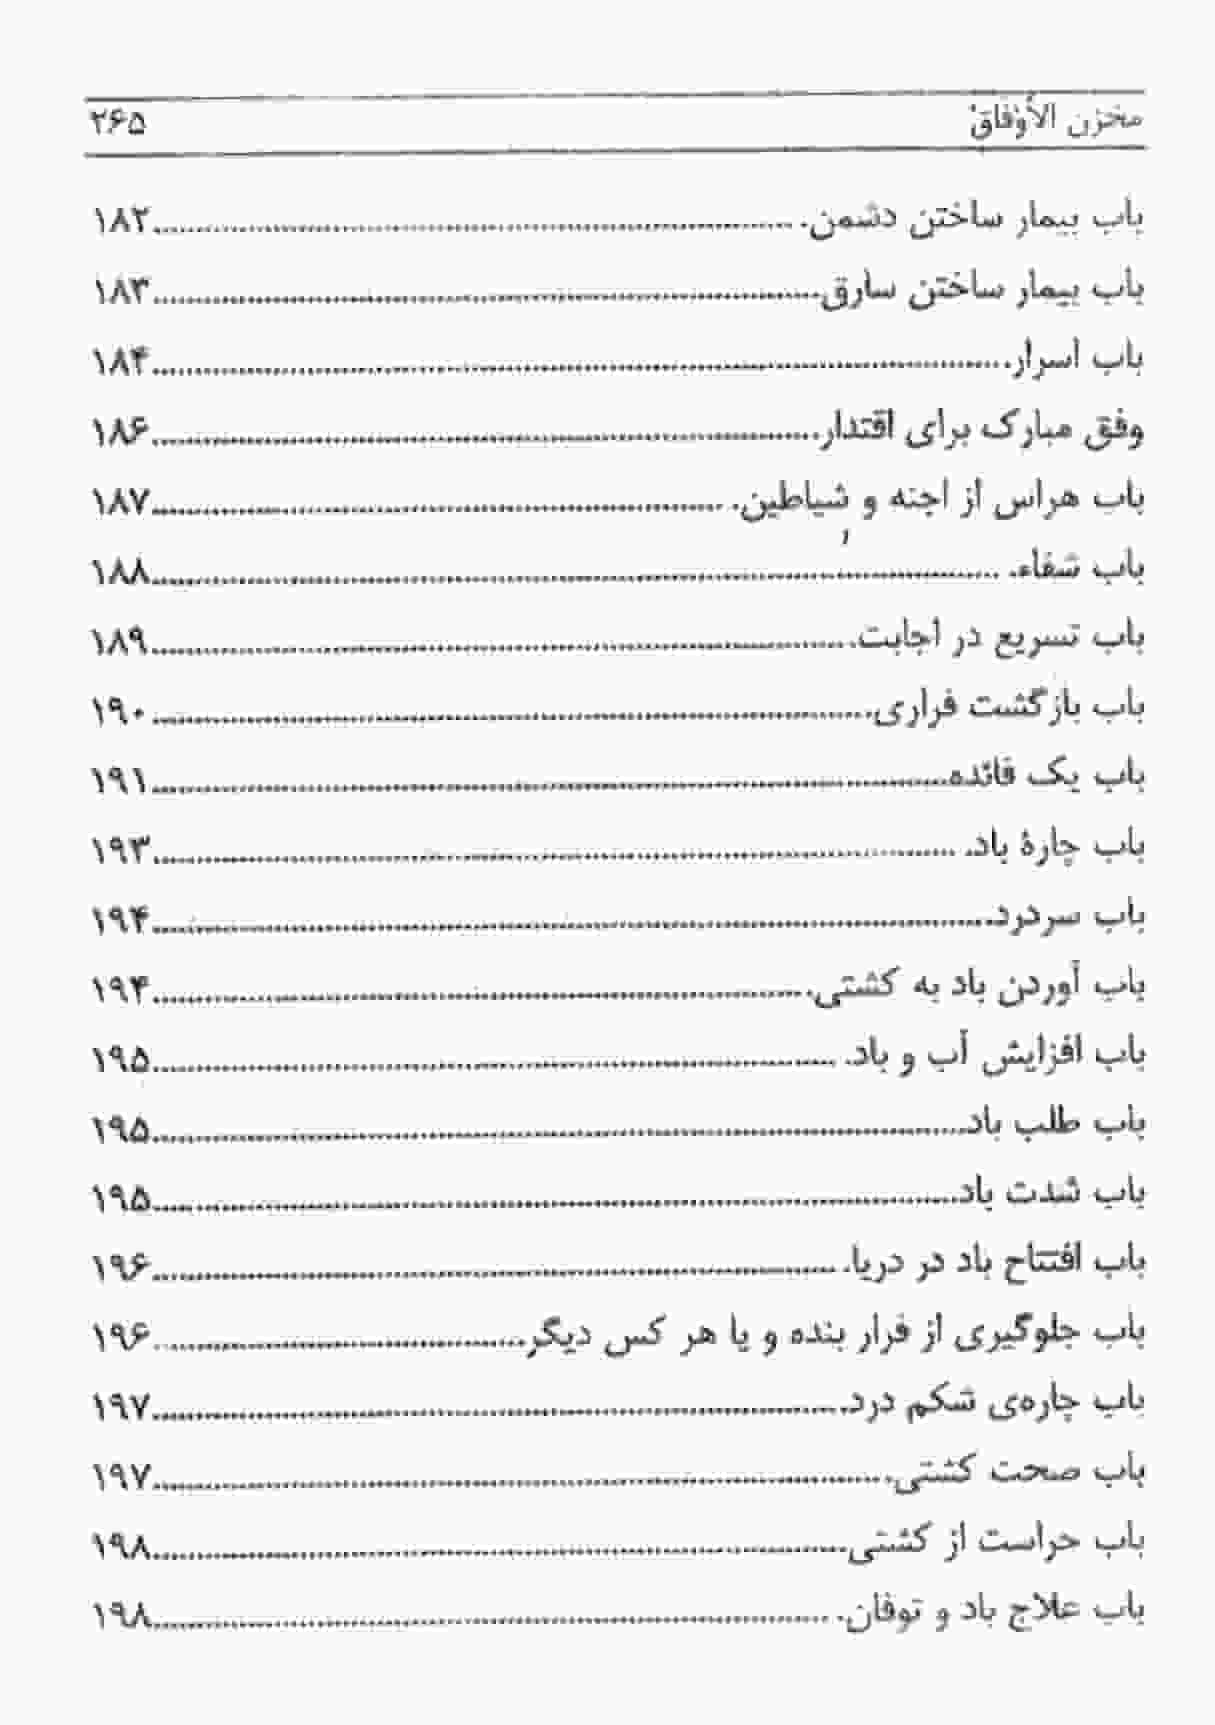 مخزن الأوْفَاقْ ۲۶۵
باب بیمار ساختن دشمن. ۱۸۲
باب بیمار ساختن سارق ۱۸۳
باب اسرار. ۱۸۴
وفق مبارک برای اقتدار. ۱۸۶
باب هراس از اجنه و شیاطین. ۱۸۷
باب شفاء. ۱۸۸
باب تسریع در اجابت. ۱۸۹
باب بازگشت فراری. ۱۹۰
باب یک فائده ۱۹۱
باب چارهٔ باد. ۱۹۳
باب سردرد. ۱۹۴
باب آوردن باد به کشتی. ۱۹۴
باب افزایش آب و باد. ۱۹۵
باب طلب باد ۱۹۵
باب شدت باد ۱۹۵
باب افتتاح باد در دریا. ۱۹۶
باب جلوگیری از فرار بنده و یا هر کس دیگر. ۱۹۶
باب چاره‌ی شکم درد. ۱۹۷
باب صحت کشتی. ۱۹۷
باب حراست از کشتی ۱۹۸
باب علاج باد و توفان. ۱۹۸